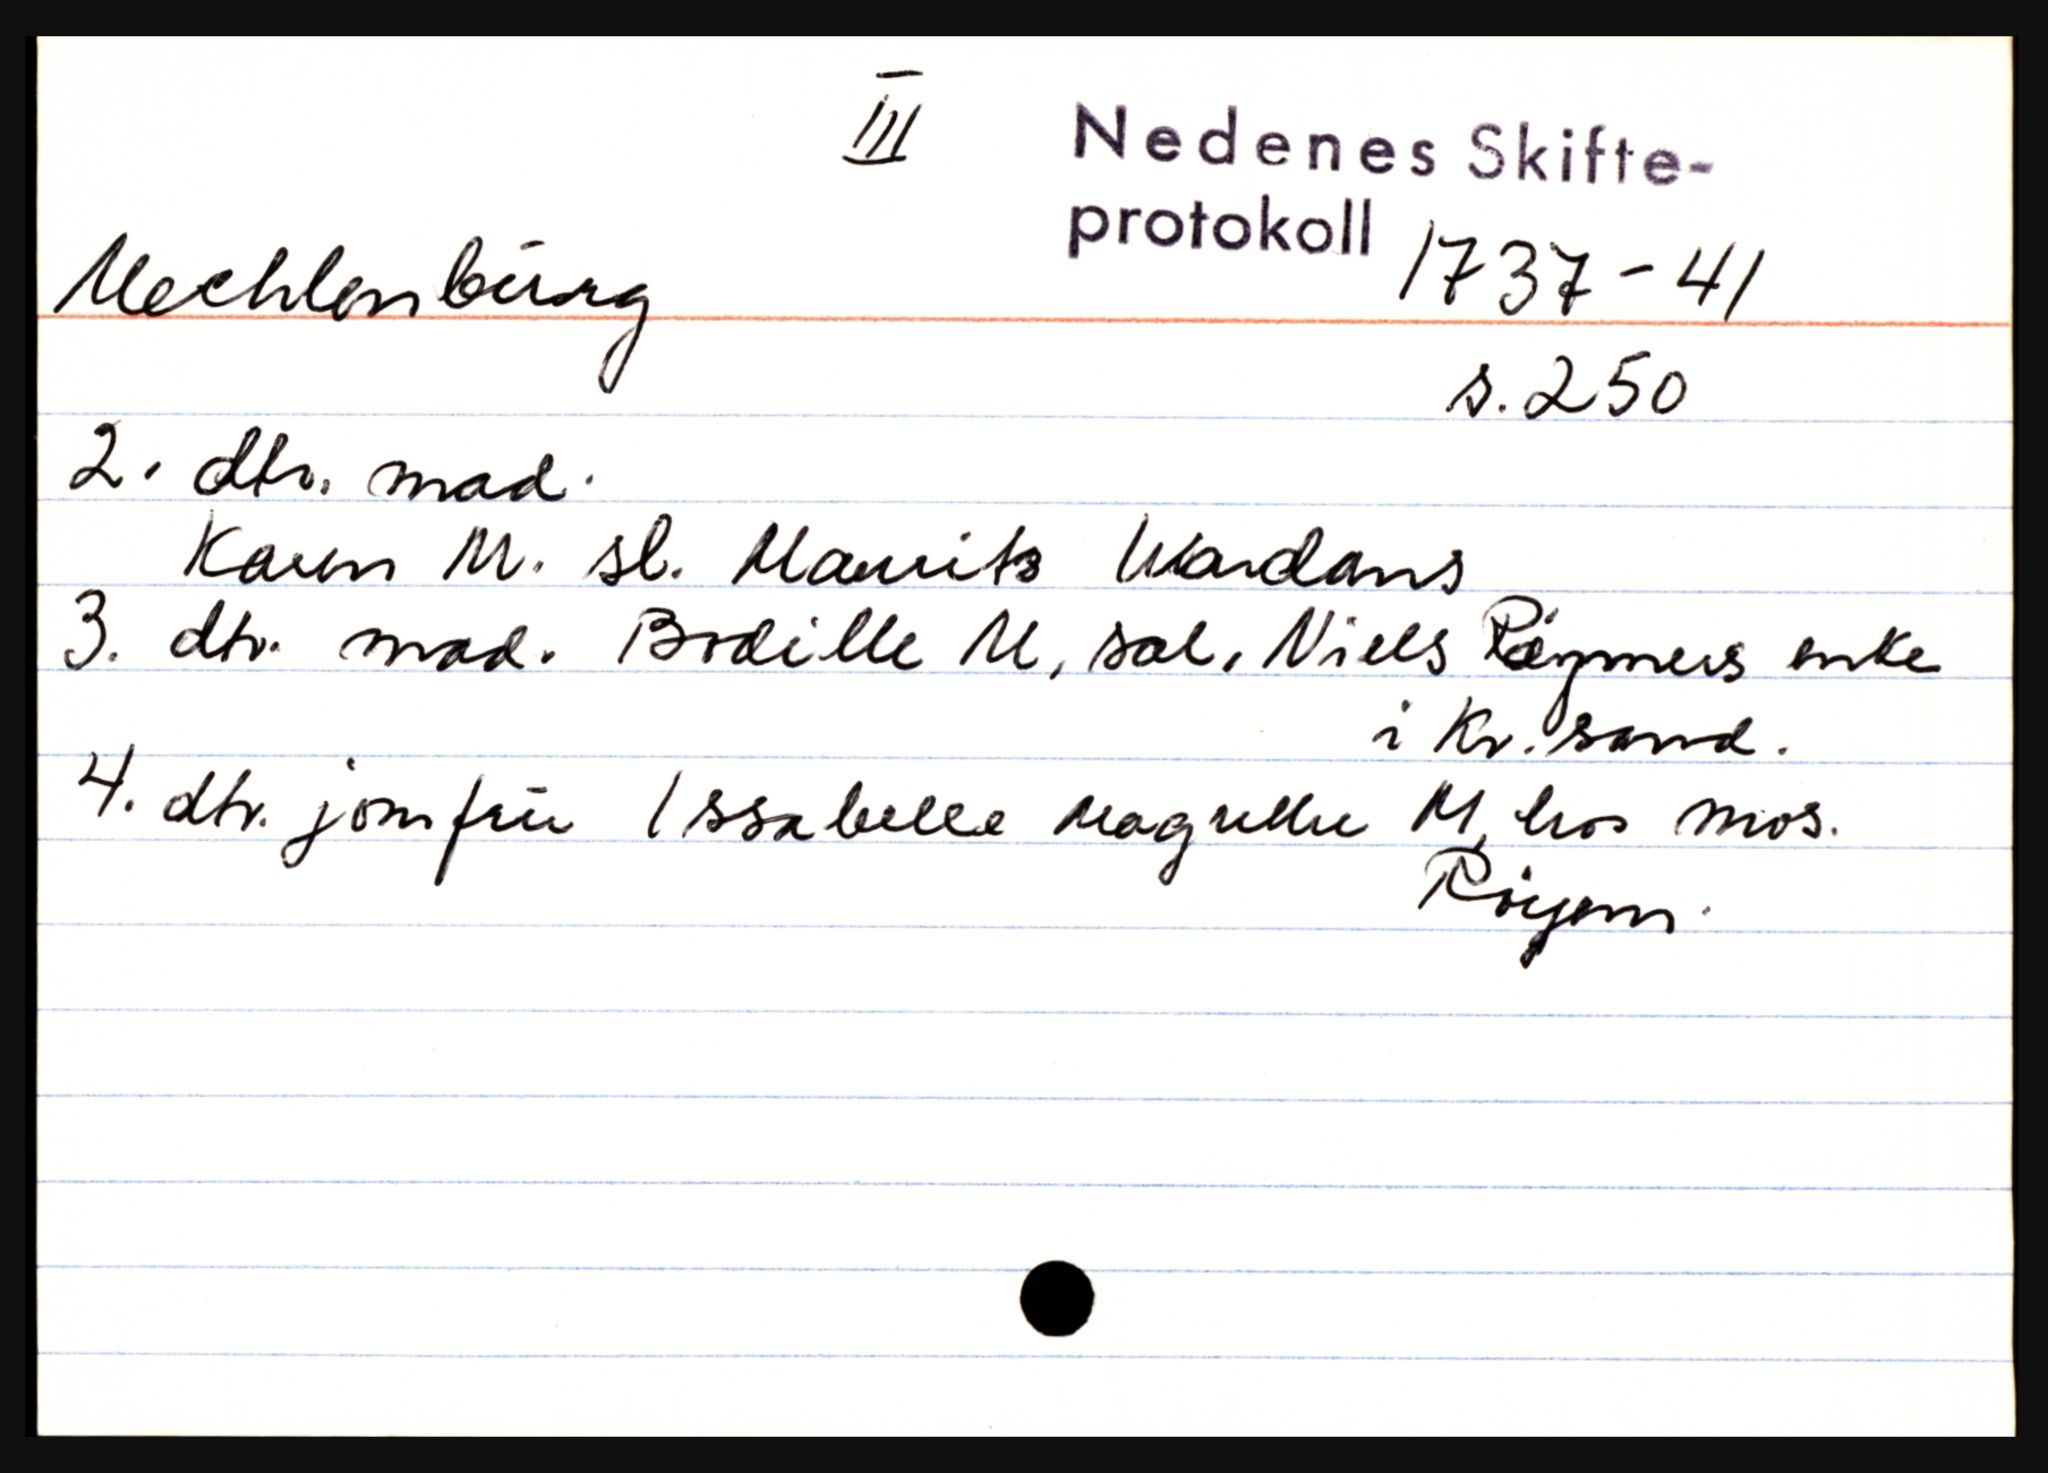 III
Nedenes Skifte-
protokoll 1737-41
Mechlenburg
s. 250
2. dtr. mad.
Karen M. sl. Mauritz Wardans
3. dtr. mad. Bodille M, sal. Niels enke
i Kr.sand.
4. dtr. jomfru Issabelle Magrethe M, hos mos.
Röyem.